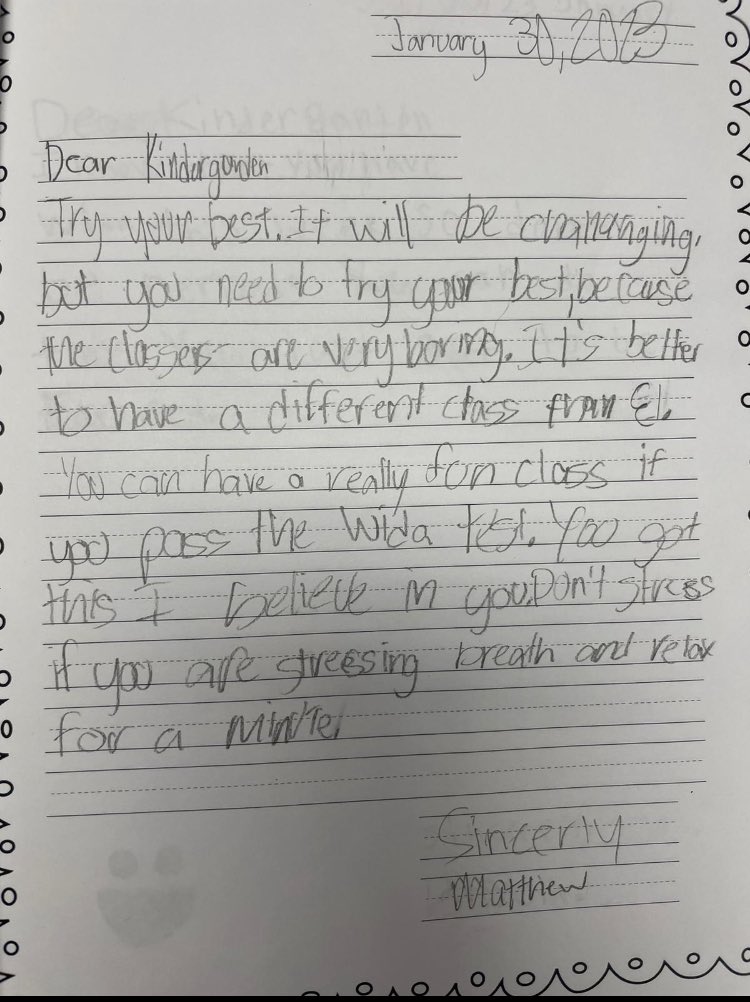 January 30, 2023
Dear Kindergarden
Try your best. It will be chananging,
but you need to try your best, because
the classers are very boring. It's better
to have a different class from El.
You can have a really fun class if
you pass the Wida test. You got
this I believe in you. Don't stress
if you are streesing breath and relax
for a minte.
Sincerly
Matthew